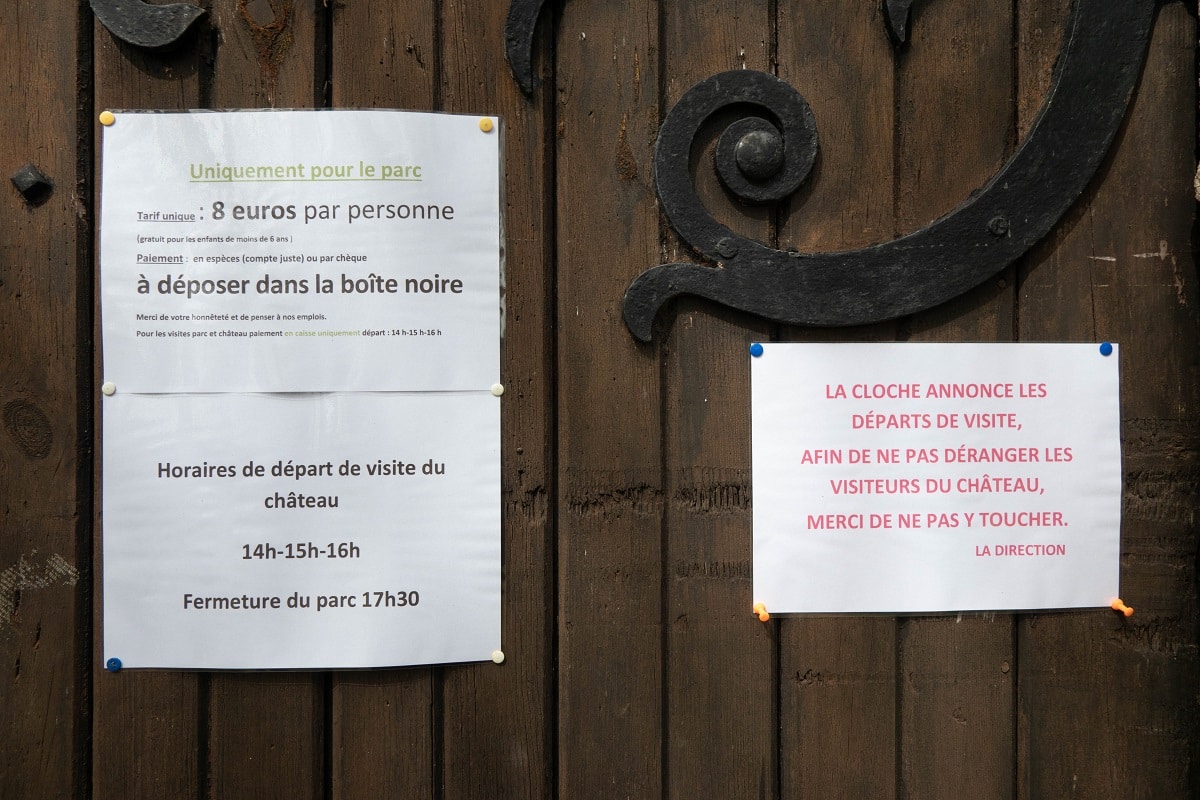 Uniquement pour le parc
Tarif unique : 8 euros par personne
(gratuit pour les enfants de moins de 6 ans )
Paiement : en espèces (compte juste) ou par chèque
à déposer dans la boîte noire
Merci de votre honnêteté et de penser à nos emplois.
Pour les visites parc et château paiement en caisse uniquement départ : 14 h-15 h-16 h
Horaires de départ de visite du
château
14h-15h-16h
Fermeture du parc 17h30
LA CLOCHE ANNONCE LES
DÉPARTS DE VISITE,
AFIN DE NE PAS DÉRANGER LES
VISITEURS DU CHÂTEAU,
MERCI DE NE PAS Y TOUCHER.
LA DIRECTION